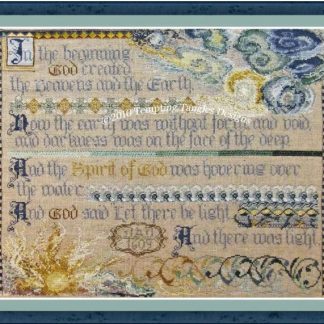 In the beginning
God created
the Heavens and the Earth.
Now the earth was without form, and void,
and darkness was on the face of the deep.
© 2010 Tempting Tangles Designs
And the Spirit of God was hovering over
the water
And God said Let there be light,
And there was light.